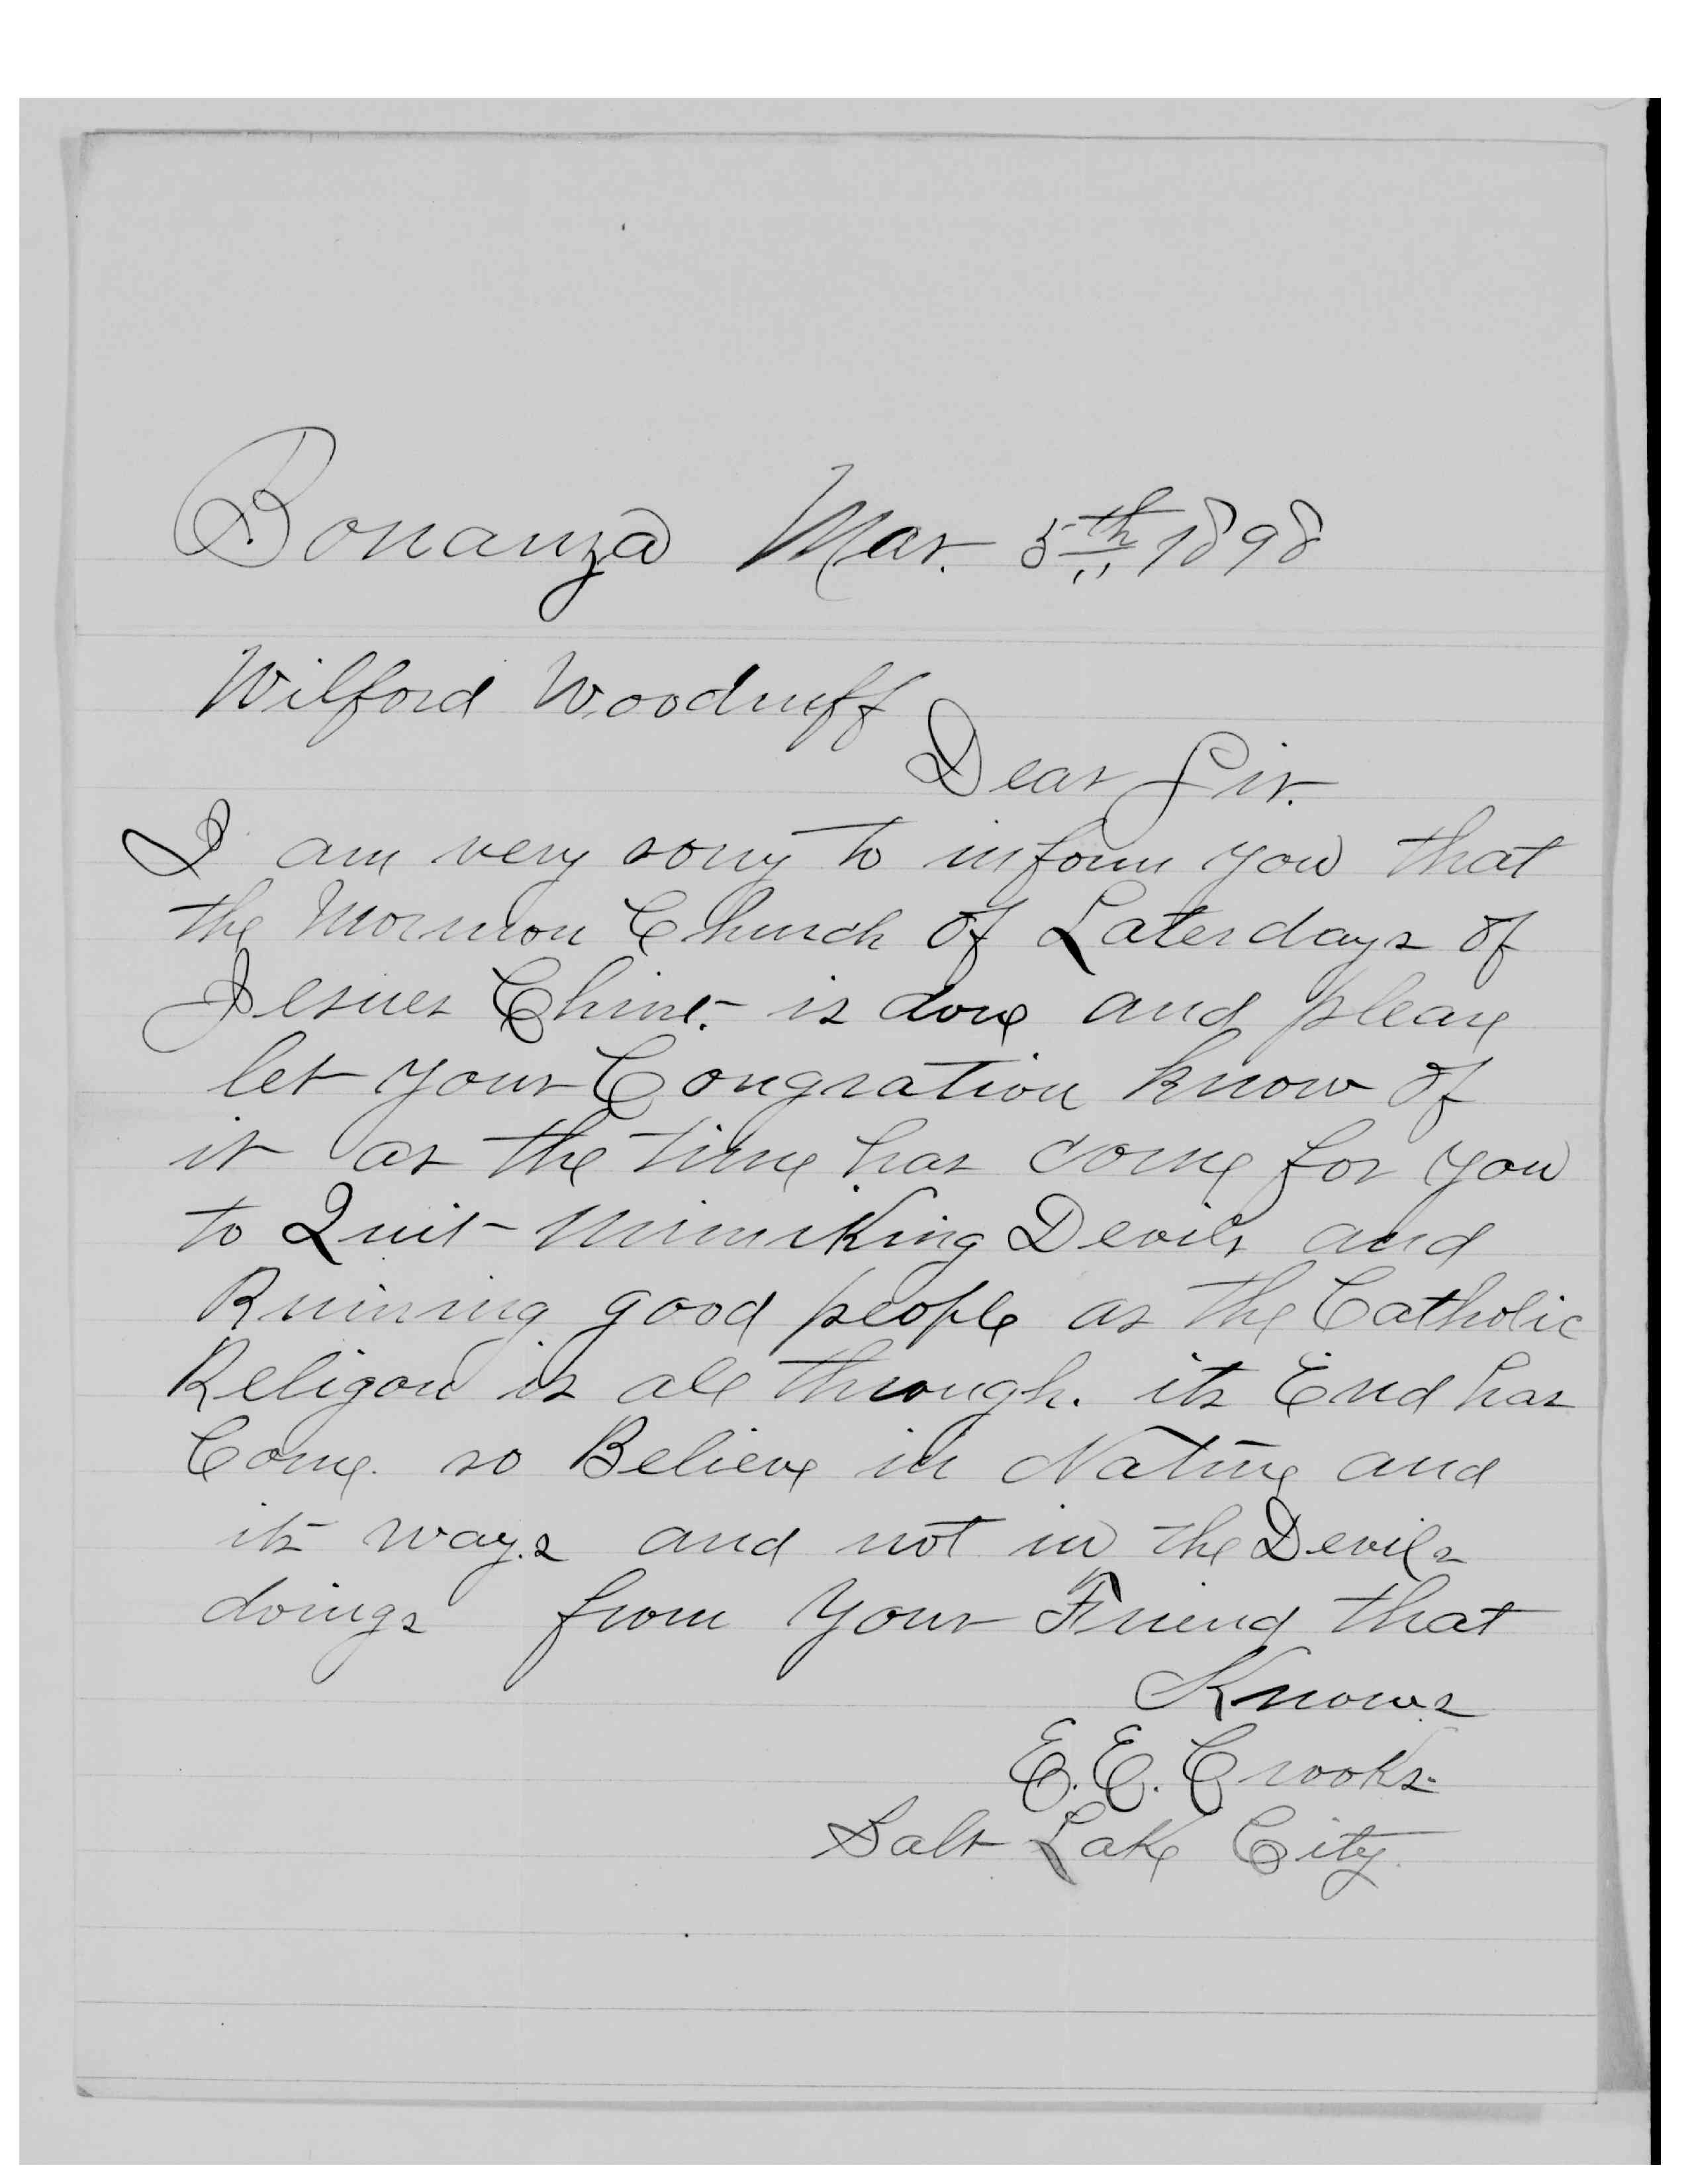 Bonanza Mar. 5th 1898
Wilford Woodruff
Dear Sir.
I am very sorry to inform you that
the Mormon Church of Laterdays of
Jesues Christ is done and please
let your Congration know of
it as the time has come for you
to Quit Mimiking Devils and
Ruining good people as the Catholic
Religon is all through. its End has
Come. so Believe in Nature and
its ways and not in the Devils
doings from your Friend that
Knows
E. E. Crooks
Salt Lake City.